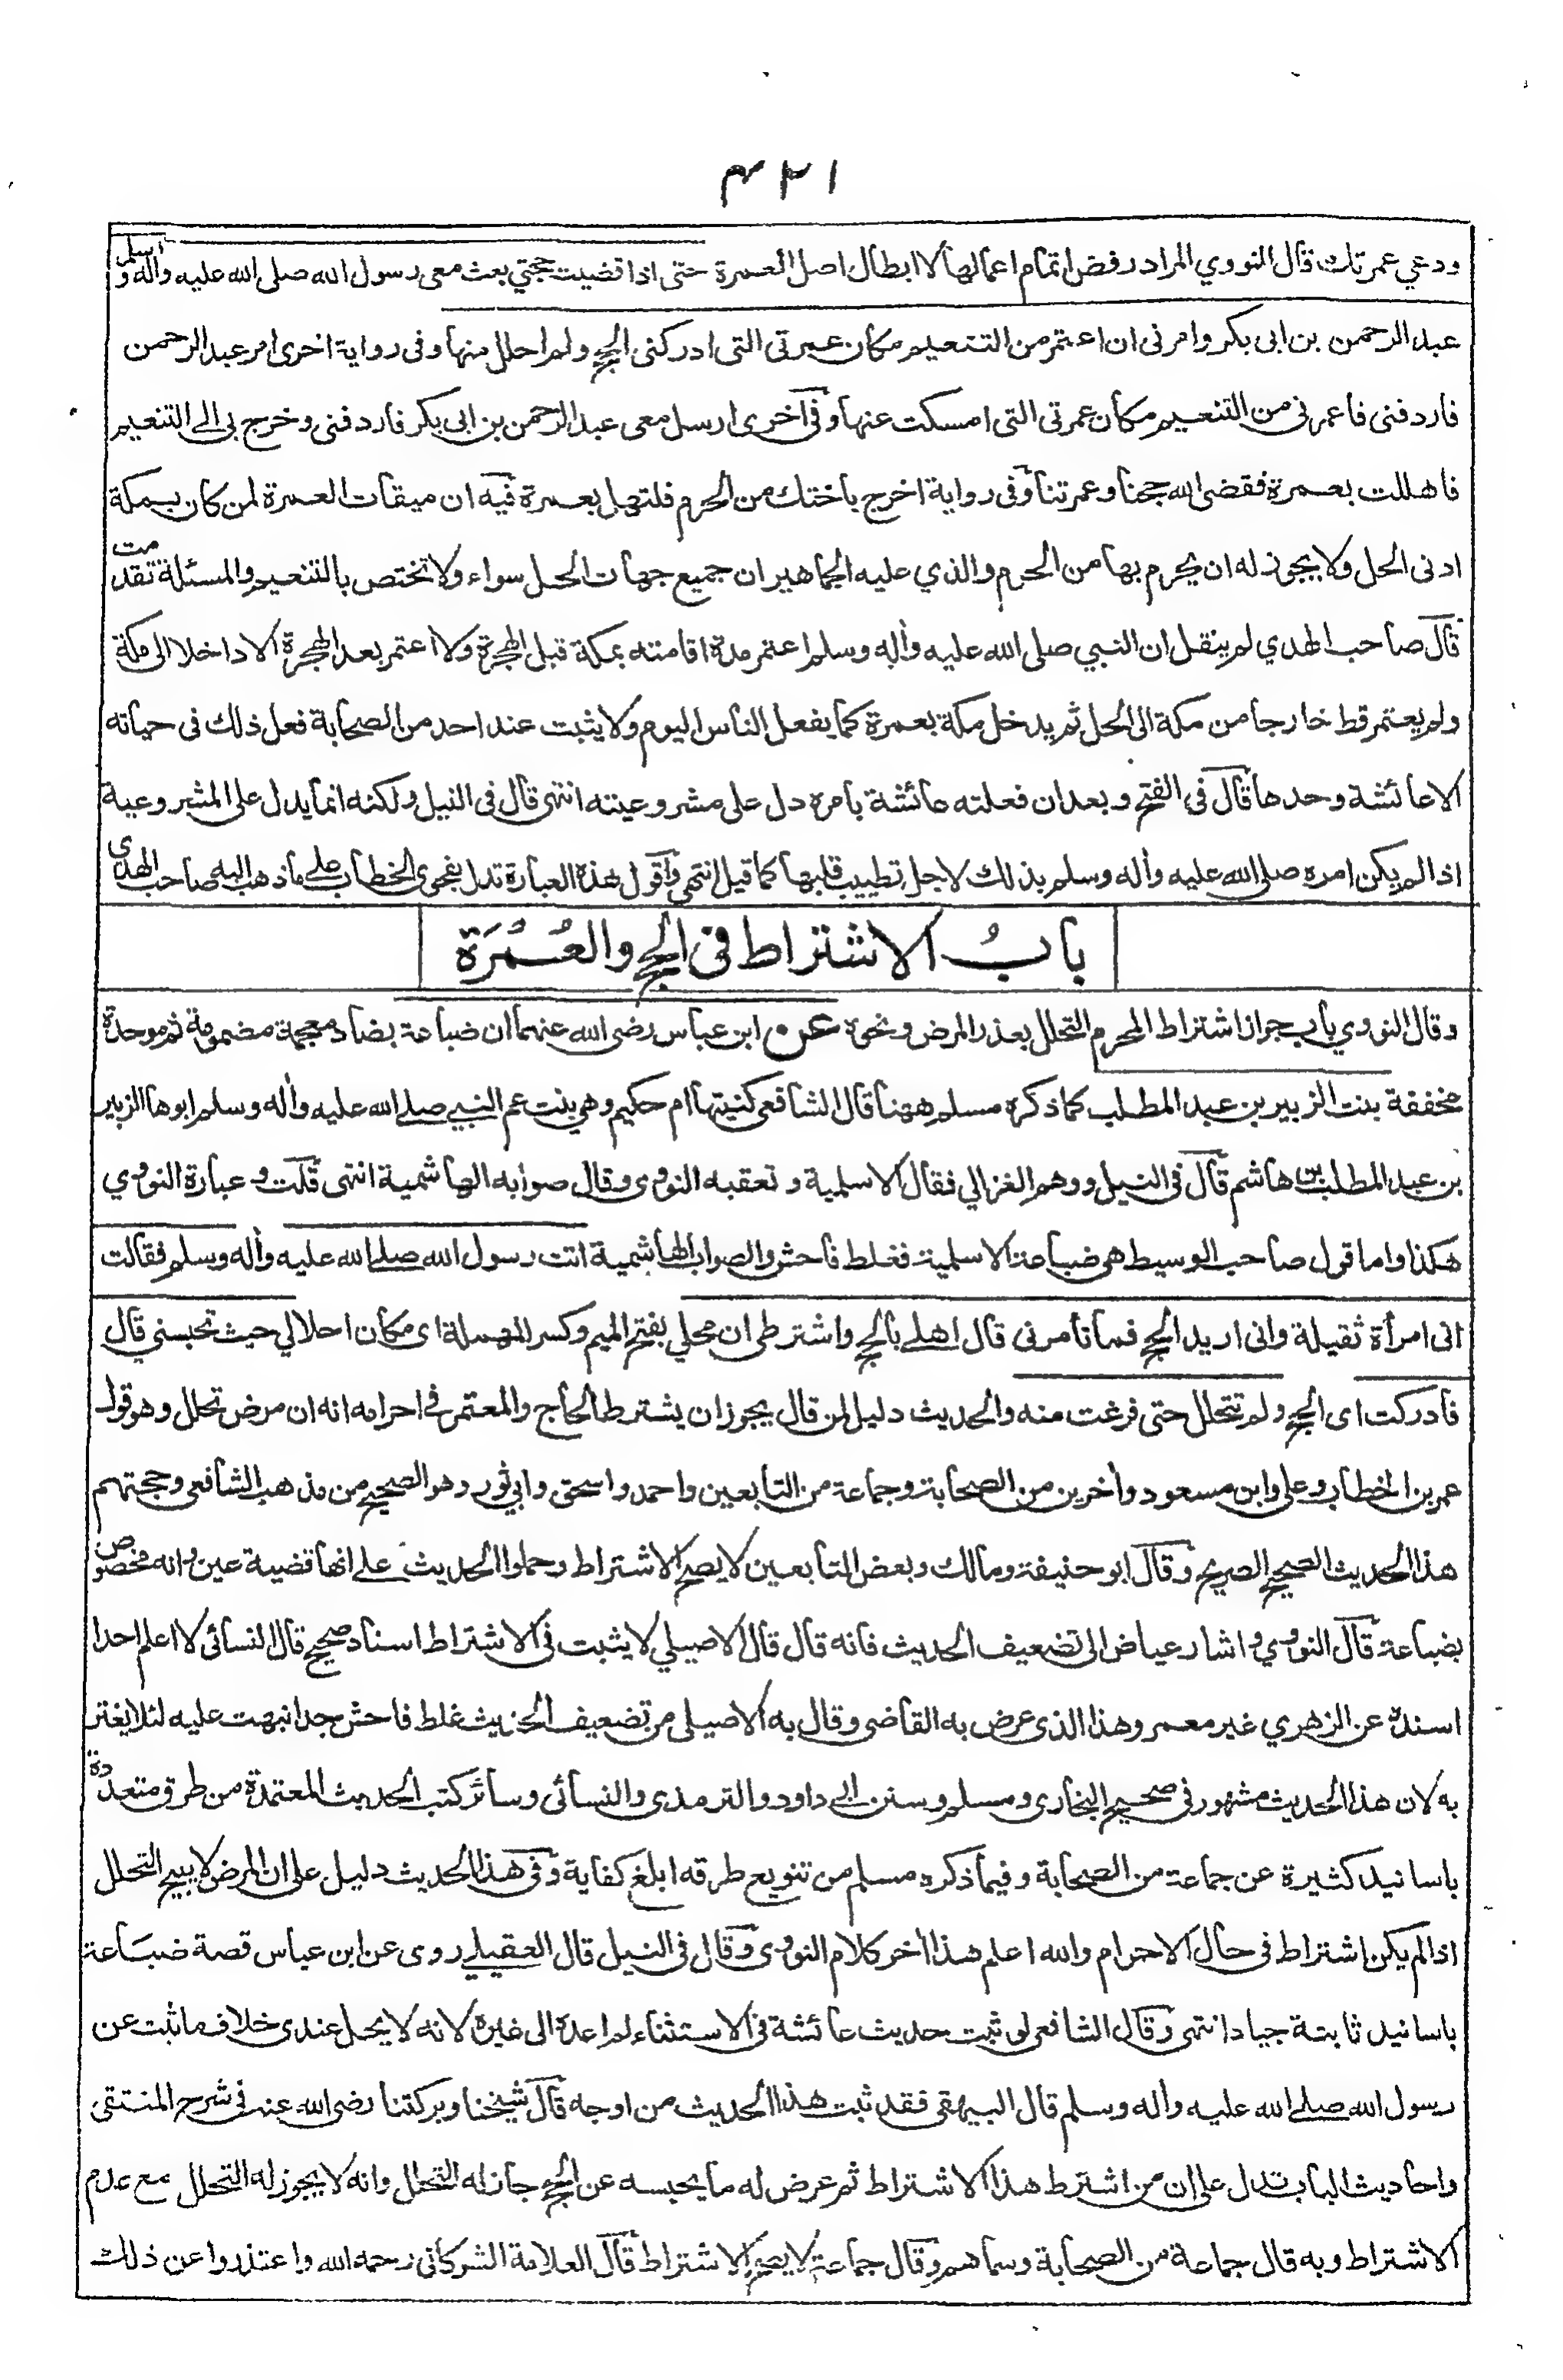 ۴۳۱
ودعي عمرتك قال النووي المراد رفض اتمام اعمالها لا ابطال اصل العمرة حتى اذا قضيت حجتي بعث معى رسول الله صلى الله عليه وأله وسلم
عبد الرحمن بن ابى بكر وامرنى ان اعتمر من التنعيم مكان عمرتى التى ادركنى الحج ولم احلل منها وفى رواية اخرى امر عبد الرحمن
فاردفنى فاعمرنى من التنعيم مكان عمرتى التى امسكت عنها وفى اخرى ارسل معى عبد الرحمن بن ابى بكر فاردفنى وخرج بى الى التنعيم
فاهللت بعمرة فقضى الله حجنا وعمرتنا وفى رواية اخرج باختك من الحرم فلتهل بعمرة فيه ان ميقات العمرة لمن كان بمكة
ادنى الحل ولا يجوز له ان يحرم بها من الحرم والذي عليه الجماهير ان جميع جهات الحل سواء ولا تختص بالتنعيم والمسئلة تقدمت
قال صاحب الهدي لم ينقل ان النبي صلى الله عليه وأله وسلم اعتمر مدة اقامته بمكة قبل الهجرة ولا اعتمر بعد الهجرة الا داخلا الى مكة
ولم يعتمر قط خارجا من مكة الى الحل ثم يدخل مكة بعمرة كما يفعل الناس اليوم ولا يثبت عند احد من الصحابة فعل ذلك فى حياته
الا عائشة وحدها قال فى الفتح وبعد ان فعلته عائشة بامره دل على مشروعيته انتهى قال فى النيل ولكنه انما يدل على المشروعية
اذا لم يكن امره صلى الله عليه وأله وسلم بذلك لاجل تطييب قلبها كما قيل انتهى واقول هذه العبارة تدل بفحوى الخطاب على ما ذهب اليه صاحب الهدى
بابُ الاشتراط فى الحج والعُمُرَة
وقال النووي باب جواز اشتراط المحرم التحلل بعذر المرض ونحوه عن ابن عباس رضى الله عنهما ان ضباعة بضاد معجمة مضمومة ثم موحدة
مخففة بنت الزبير بن عبد المطلب كما ذكره مسلم ههنا قال الشافعى كنيتها ام حكيم وهي بنت عم النبي صلے الله عليه وأله وسلم ابوها الزبير
بن عبد المطلب بن هاشم قال فى النيل ووهم الغزالي فقال الاسلمية وتعقبه النووى وقال صوابه الهاشمية انتهى قلت وعبارة النووي
هكذا واما قول صاحب الوسيط هى ضباعة الاسلمية فغلط فاحش والصواب الهاشمية اتت رسول الله صلے الله عليه وأله وسلم فقالت
انى امرأة ثقيلة وانى اريد الحج فما تأمرنى قال اهلے بالحج واشترطى ان محلي بفتح الميم وكسر المهملة اى مكان احلالي حيث تحبسني قال
فادركت اى الحج ولم تتحلل حتى فرغت منه والحديث دليل لمن قال يجوز ان يشترط الحاج والمعتمر فى احرامه انه ان مرض تحلل وهو قول
عمر بن الخطاب وعلى وابن مسعود وأخرين من الصحابة وجماعة من التابعين واحمد واسحق وابي ثور وهو الصحيح من مذهب الشافعى وحجتهم
هذا الحديث الصحيح الصريح وقال ابو حنيفة ومالك وبعض التابعين لا يصح الاشتراط وحملوا الحديث على انها قضية عين وانه مخصوص
بضباعة قال النووي واشار عياض الى تضعيف الحديث فانه قال قال الاصيلي لا يثبت فى الاشتراط اسناد صحيح قال النسائى لا اعلم احدا
اسنده عن الزهري غير معمر وهذا الذى عرض به القاضى وقال به الاصيلى من تضعيف الحديث غلط فاحش جدا نبهت عليه لئلا يغتر
به لان هذا الحديث مشهور فى صحيح البخارى ومسلم وسنن ابى داود والترمذى والنسائى وسائر كتب الحديث المعتمدة من طرق متعددة
باسانيد كثيرة عن جماعة من الصحابة وفيما ذكره مسلم من تنويع طرقه ابلغ كفاية وفى هذا الحديث دليل على ان المرض لا يبيح التحلل
اذا لم يكن اشتراط فى حال الاحرام والله اعلم هذا أخر كلام النووى وقال فى النيل قال العقيلے روى عن ابن عباس قصة ضبَاعة
باسانيد ثابتة جياد انتهى وقال الشافعى لو ثبت حديث عائشة فى الاستثناء لم اعده الى غيره لانه لا يحل عندى خلاف ما ثبت عن
رسول الله صلے الله عليه وأله وسلم قال البيهقى فقد ثبت هذا الحديث من اوجه قال شيخنا وبركتنا رضى الله عنه فى شرح المنتقى
واحاديث الباب تدل على ان من اشترط هذا الاشتراط ثم عرض له ما يحبسه عن الحج جاز له التحلل وانه لا يجوز له التحلل مع عدم
الاشتراط وبه قال جماعة من الصحابة وسماهم وقال جماعة لا يصح الاشتراط قال العلامة الشوكانى رحمه الله واعتذروا عن ذلك